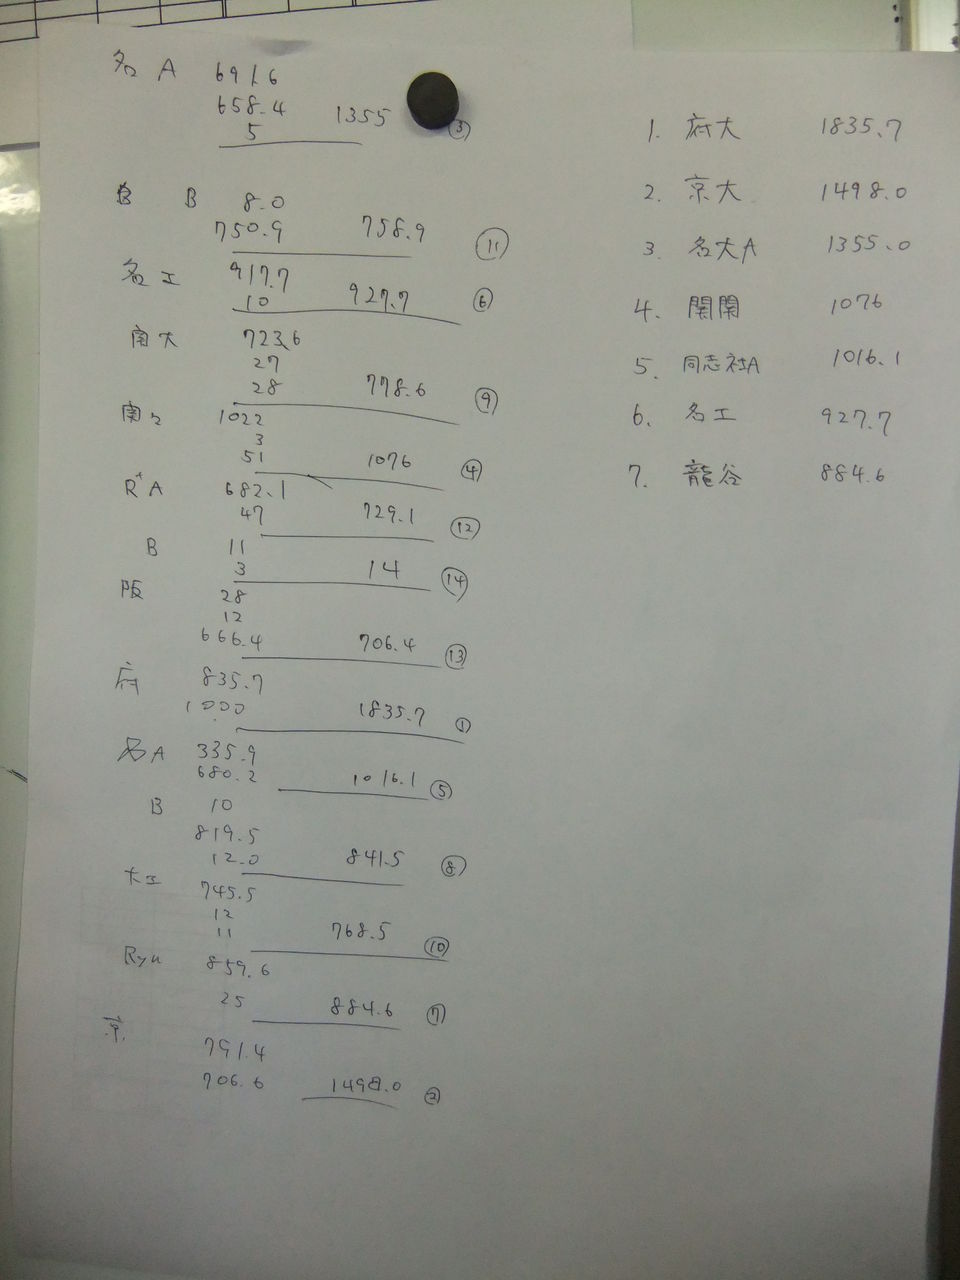 名 A 691.6
658.4 1355
5 ③
B 8.0
750.9 758.9 ⑪
名工 917.7
10 927.7 ⑥
南大 723.6
27
28 778.6 ⑨
1022
3
51 1076 ④
R A 682.1
47 729.1 ⑫
B 11
3 14 ⑭
阪 28
12
666.4 706.4 ⑬
府 835.7
1000 1835.7 ①
A 335.9
680.2 1016.1 ⑤
B 10
819.5
12.0 841.5 ⑧
大工 745.5
12
11 768.5 ⑩
Ryu 859.6
25 884.6 ⑦
京 791.4
706.6 1498.0 ②
1. 府大 1835.7
2. 京大 1498.0
3. 名大A 1355.0
4. 関関 1076
5. 同志社A 1016.1
6. 名工 927.7
7. 龍谷 884.6